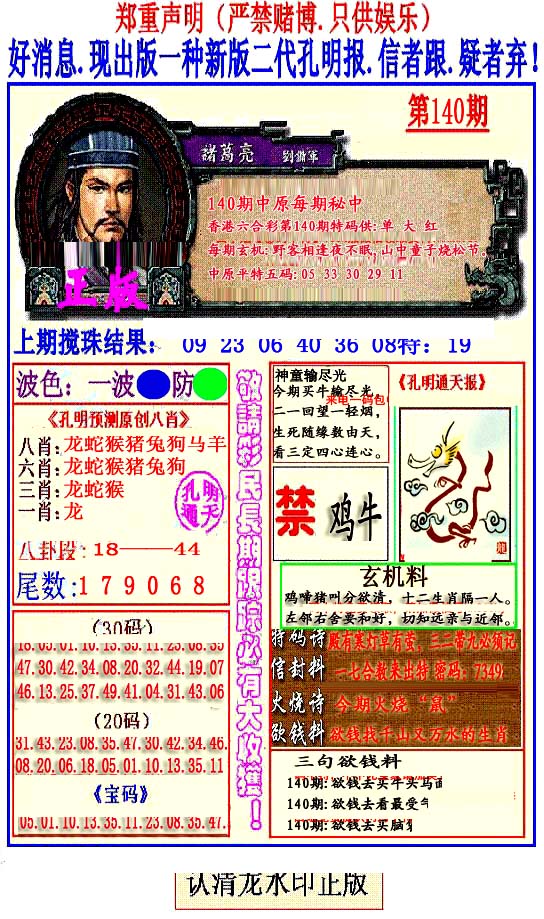 郑重声明（严禁赌博.只供娱乐）
好消息.现出版一种新版二代孔明报.信者跟.疑者弃!
第140期
諸葛亮 劉備軍
140期中原每期秘中
香港六合彩第140期特码供:单 大 红
每期玄机:野客相逢夜不眠,山中童子烧松节。
中原平特五码:05 33 30 29 11
正版
上期搅珠结果: 09 23 06 40 36 08特: 19
波色: 一波 防
《孔明预测原创八肖》
八肖:龙蛇猴猪兔狗马羊
六肖:龙蛇猴猪兔狗
三肖:龙蛇猴
一肖:龙
孔明通天
八卦段:18——44
尾数:179068
(30码)
18.05.01.10.13.35.11.23.08.35
47.30.42.34.08.20.32.44.19.07
46.13.25.37.49.41.04.31.43.06
(20码)
31.43.23.08.35.47.30.42.34.46.
08.20.06.18.05.01.10.13.35.11
《宝码》
05.01.10.13.35.11.23.08.35.47.
敬請彩民長期跟踪必有大收獲!
神童输尽光
今期买牛输尽光,
来电一码包
二一回望一轻烟,
生死随缘数由天,
看三定四心连心。
《孔明通天报》
禁 鸡牛
龙
玄机料
鸡啼猪叫分欲清,十二生肖隔一人。
左邻右舍要和好,切知远亲与近邻。
特码诗 殿有寒灯草有萤,三二带九必须记
信封料 一七合数来出特 密码: 7349
火烧诗 今期火烧“鼠”
欲钱料 欲钱找千山又万水的生肖
三句欲钱料
140期:欲钱去买牛头马面
140期:欲钱去看最受气
140期:欲钱去买脑
认清龙水印正版